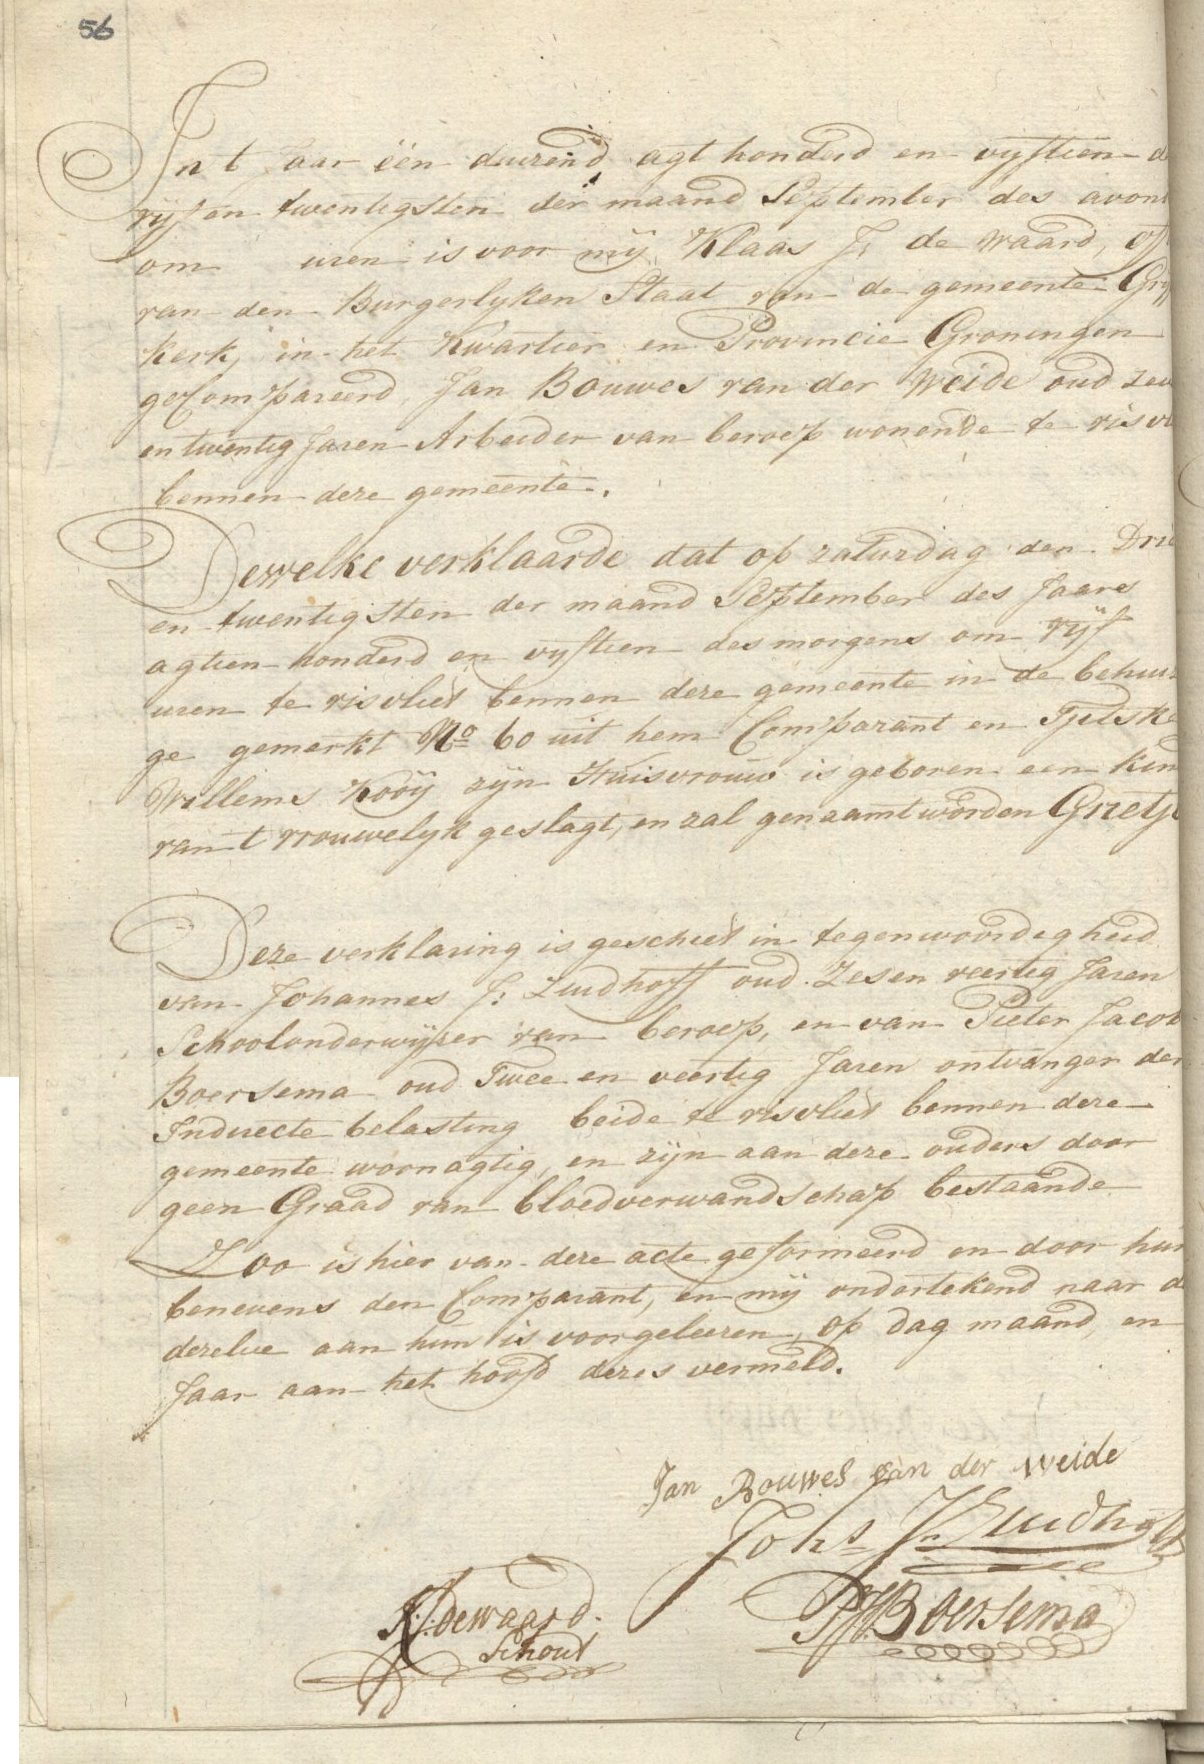 56
Int Jaar één duizend agt honderd en vyftien d
vyf en twentigsten der maand September des avon
om uren is voor mij Klaas J: de Waard, off
van den Burgerlyken Staat van de gemeente Gry
kerk, in het Kwartier en Provincie Groningen
geCompareerd Jan Bouwes van der Weide oud zev
en twentig Jaren Arbeider van beroep wonende te visvl
bennen deze gemeente.
Dewelke verklaarde dat op zaturdag den Drie
en twentigsten der maand September des Jaars
agtien honderd en vyftien des morgens om vyf
uren te visvliet bennen deze gemeente in de behui
ge gemerkt No 60 uit hem Comparant en Tjitske
Willems Kooij zijn Huisvrouw is geboren een kin
van t vrouwelyk geslagt, en zal genaamt worden Grietj
Deze verklaring is geschiet in tegenwoordigheid
van Johannes J: Zuidhoff oud Zes en veertig Jaren
Schoolonderwyzer van beroep, en van Pieter Jacob
Boersema oud Twee en veertig Jaren ontvanger der
Indirecte belasting beide te visvliet bennen deze
gemeente woonagtig, en zijn aan deze ouders door
geen Graad van bloedverwandschap bestaande
Zoo is hier van deze acte geformeerd en door hun
benevens den Comparant, en mij ondertekend naar d
dezelve aan hun is voorgeleezen, op dag maand, en
Jaar aan het hoofd dezes vermeld.
Jan Bouwes van der Weide
Johs Js Zuidhoff
KJ: de Waard.
Schout
PJBoersema